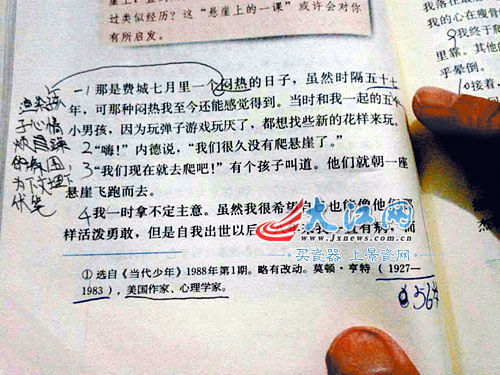 过类似经历？这“悬崖上的一课”或许会对你
有所启发。
我的心在瘦骨
我终于爬
里靠。其他
乎晕倒。
接着，
1 那是费城七月里一个闷热的日子，虽然时隔五十七
年，可那种闷热我至今还能感觉得到。当时和我一起的五个
小男孩，因为玩弹子游戏玩厌了，都想找些新的花样来玩，
2 “嗨！”内德说，“我们很久没有爬悬崖了。”
3 “我们现在就去爬吧！”有个孩子叫道。他们就朝一座
悬崖飞跑而去。
4 我一时拿不定主意。虽然我很希望
样活泼勇敢，但是自我出世以后
于心情
烦
为下文埋下
伏笔
大江网
www.jxnews.com.cn
买资器 上景资网
① 选自《当代少年》1988年第1期。略有改动。莫顿·亨特（1927—
1983），美国作家、心理学家。
56